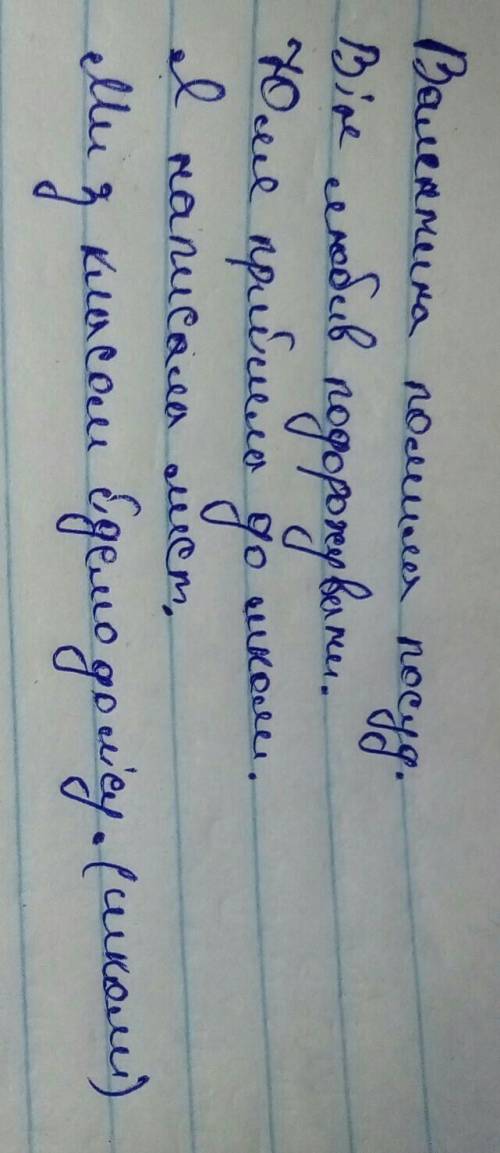 Валентина помила посуд.
Він любив подорожувати.
Юля прийшла до школи.
Я написала лист.
Ми з класом їдемо до лісу. (школи)